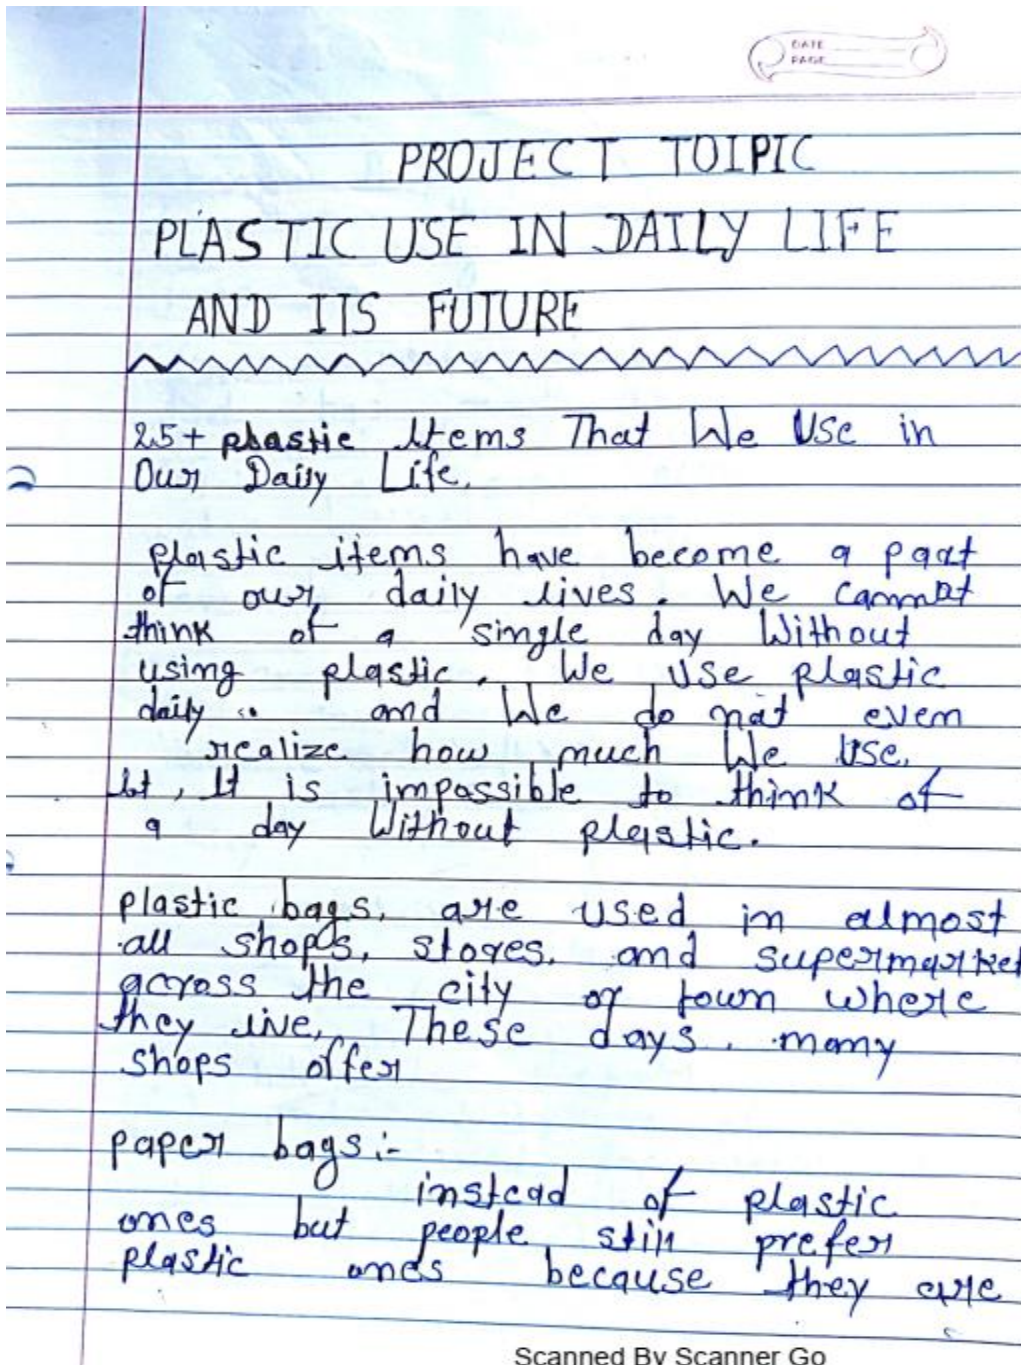 DATE
PAGE
PROJECT TOIPIC
PLASTIC USE IN DAILY LIFE
AND ITS FUTURE
25+ plastic Items That We Use in
Our Daily Life.
plastic items have become a part
of our daily lives. We cannot
think of a single day Without
using plastic. We Use plastic
daily .. and We do not even
realize how much We Use.
It, It is impassible to think of
a day Without plastic.
plastic bags, are used in almost
all shops, stores, and supermarket
across the city or town where
they live, These days, many
shops offer
paper bags:-
instead of plastic
ones but people still prefer
plastic ones because they are
Scanned By Scanner Go